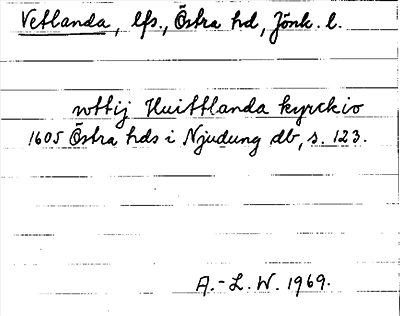 Vetlanda, lfs., Östra hd, Jönk. l.
wttij Huittlanda kyrckio
1605 Östra hds i Njudung db, s. 123.
A.-L.W. 1969.